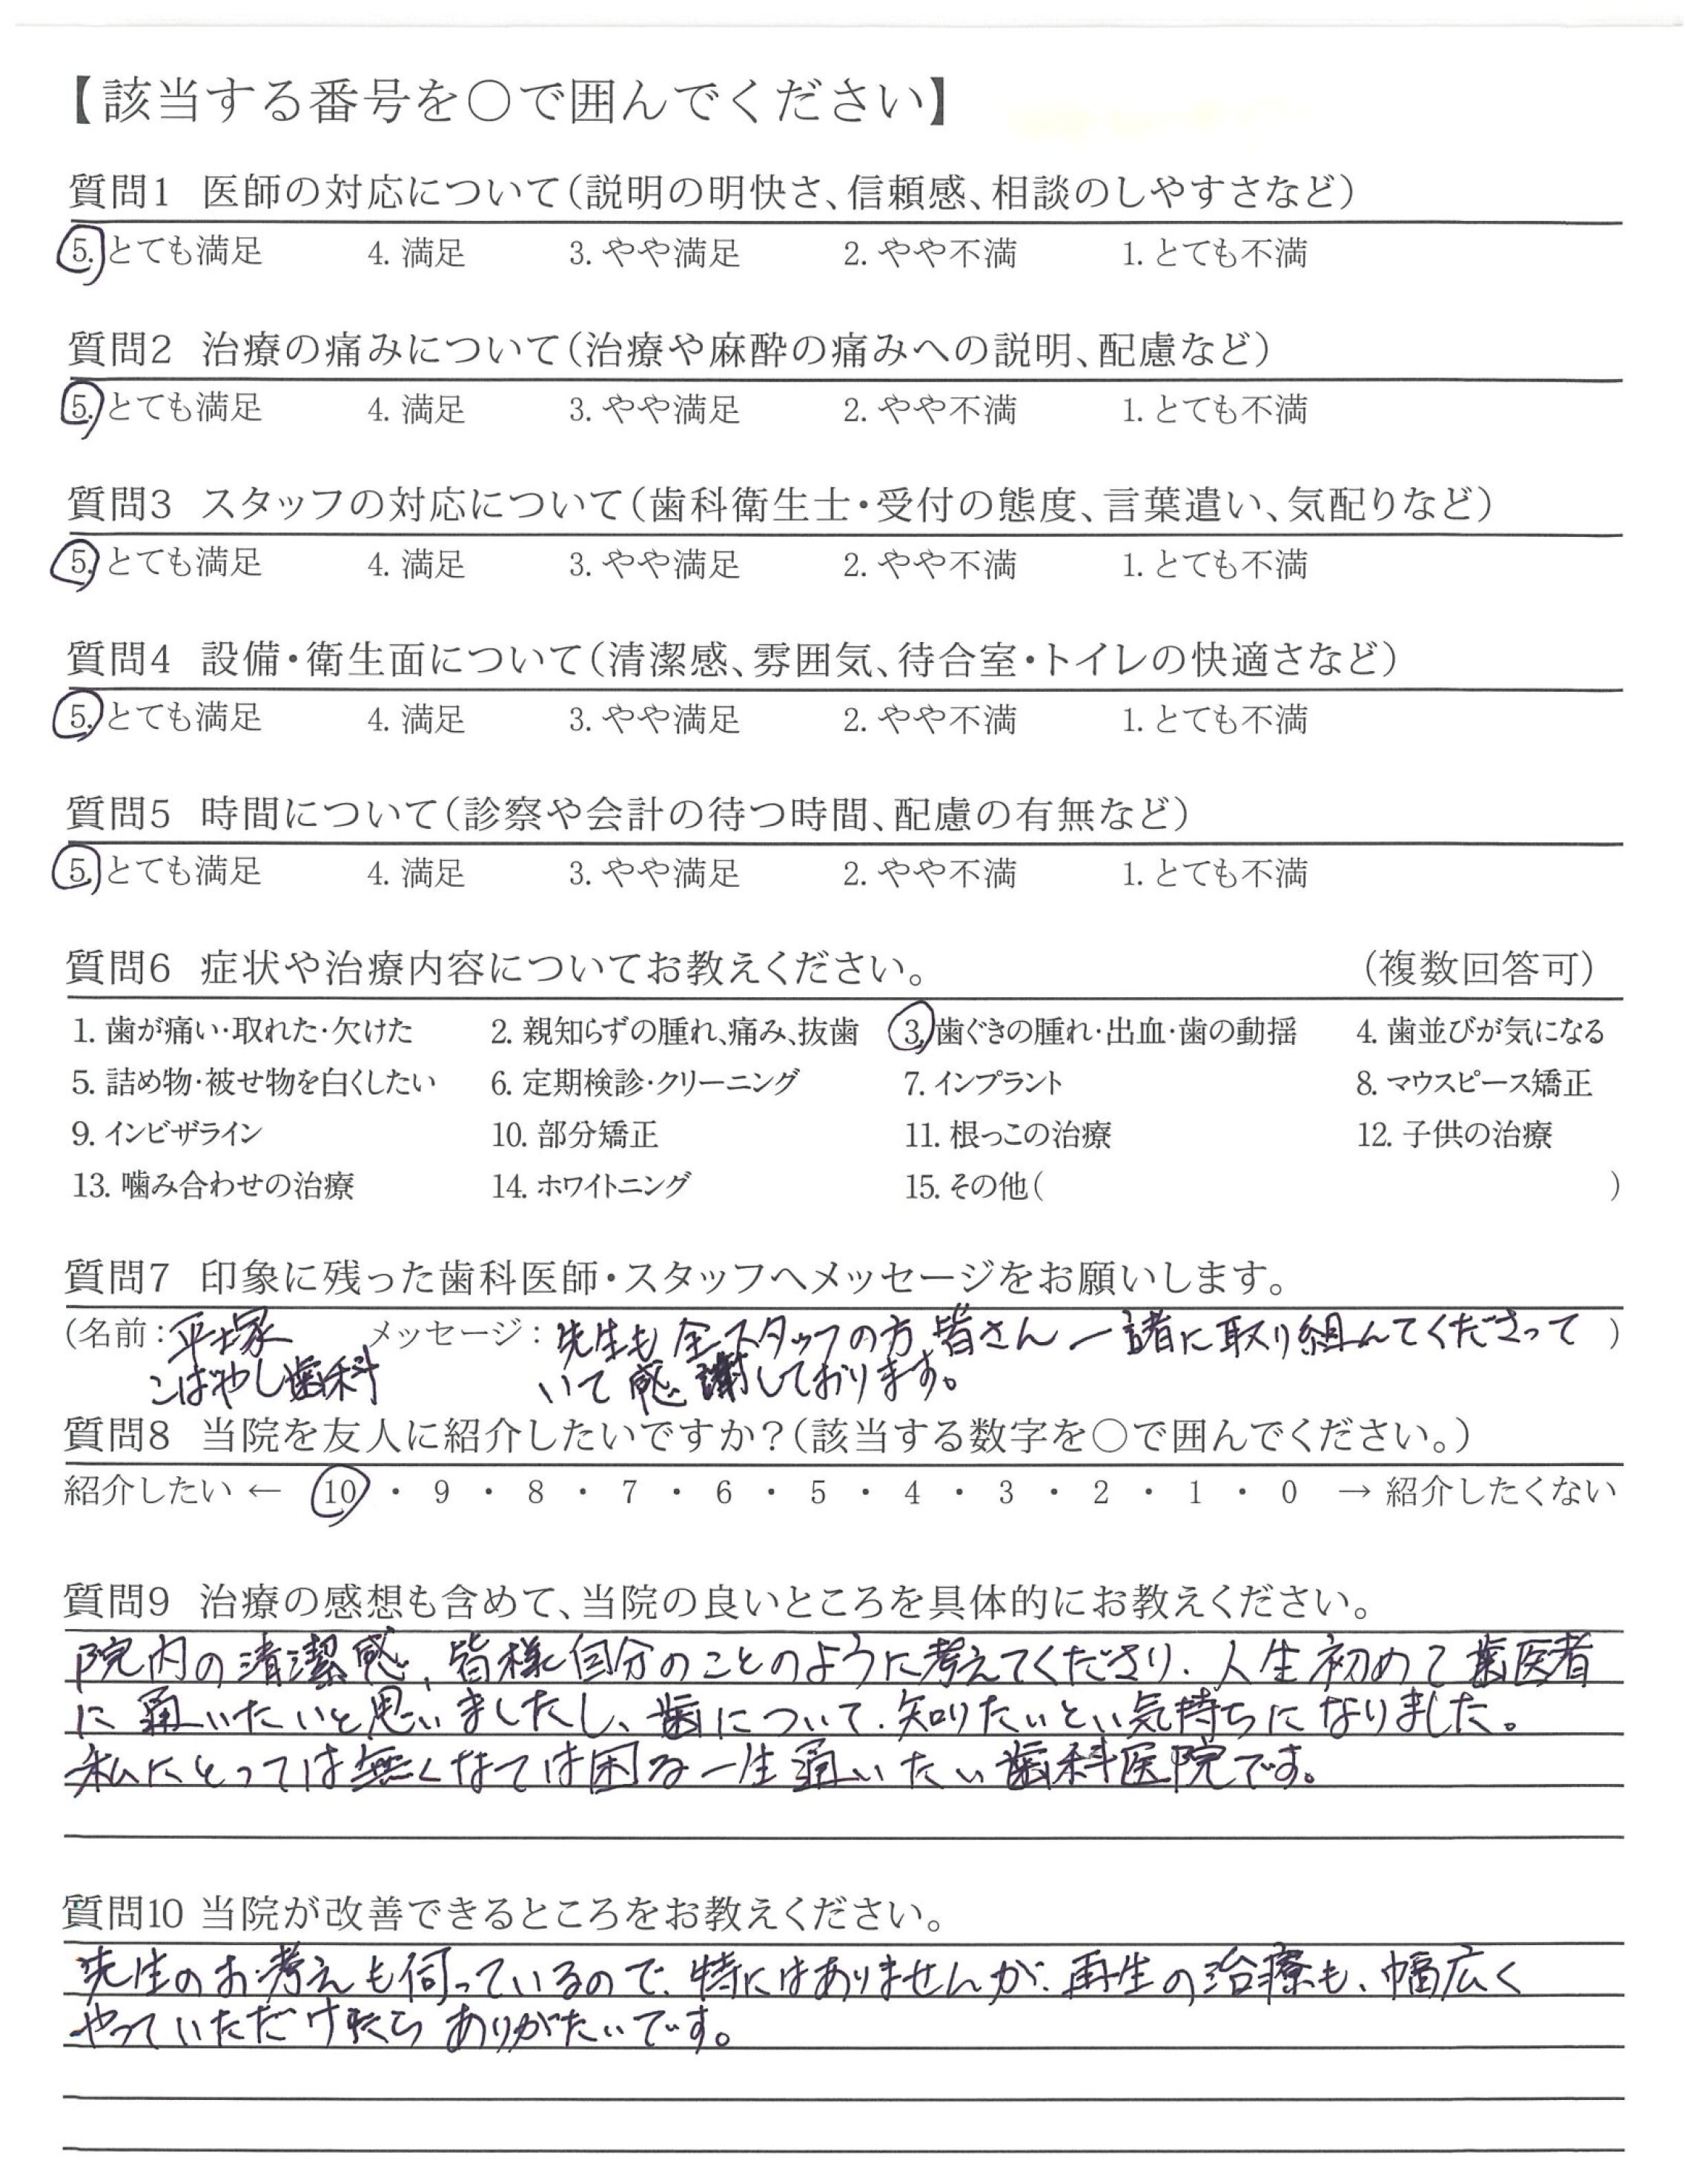 【該当する番号を○で囲んでください】
質問1 医師の対応について(説明の明快さ、信頼感、相談のしやすさなど)
5. とても満足 4. 満足 3. やや満足 2. やや不満 1. とても不満
質問2 治療の痛みについて(治療や麻酔の痛みへの説明、配慮など)
5. とても満足 4. 満足 3. やや満足 2. やや不満 1. とても不満
質問3 スタッフの対応について(歯科衛生士・受付の態度、言葉遣い、気配りなど)
5. とても満足 4. 満足 3. やや満足 2. やや不満 1. とても不満
質問4 設備・衛生面について(清潔感、雰囲気、待合室・トイレの快適さなど)
5. とても満足 4. 満足 3. やや満足 2. やや不満 1. とても不満
質問5 時間について(診察や会計の待つ時間、配慮の有無など)
5. とても満足 4. 満足 3. やや満足 2. やや不満 1. とても不満
質問6 症状や治療内容についてお教えください。 (複数回答可)
1. 歯が痛い・取れた・欠けた 2. 親知らずの腫れ、痛み、抜歯 3. 歯ぐきの腫れ・出血・歯の動揺 4. 歯並びが気になる
5. 詰め物・被せ物を白くしたい 6. 定期検診・クリーニング 7. インプラント 8. マウスピース矯正
9. インビザライン 10. 部分矯正 11. 根っこの治療 12. 子供の治療
13. 噛み合わせの治療 14. ホワイトニング 15. その他( )
質問7 印象に残った歯科医師・スタッフへメッセージをお願いします。
(名前:平塚 メッセージ:先生も全スタッフの方皆さん一諸に取り組んてくださって )
こばやし歯科 いて感謝しております。
質問8 当院を友人に紹介したいですか?(該当する数字を○で囲んでください。)
紹介したい ← 10 ・ 9 ・ 8 ・ 7 ・ 6 ・ 5 ・ 4 ・ 3 ・ 2 ・ 1 ・ 0 → 紹介したくない
質問9 治療の感想も含めて、当院の良いところを具体的にお教えください。
院内の清潔感、皆様自分のことのように考えてくださり、人生初めて歯医者
に通いたいと思いましたし、歯について、知りたいとい気持ちになりました。
私にとっては無くなては困る一生通いたい歯科医院です。
質問10 当院が改善できるところをお教えください。
先生のお考えも伺っているので、特にはありませんが、再生の治療も、幅広く
やっていただけたら ありがたいです。